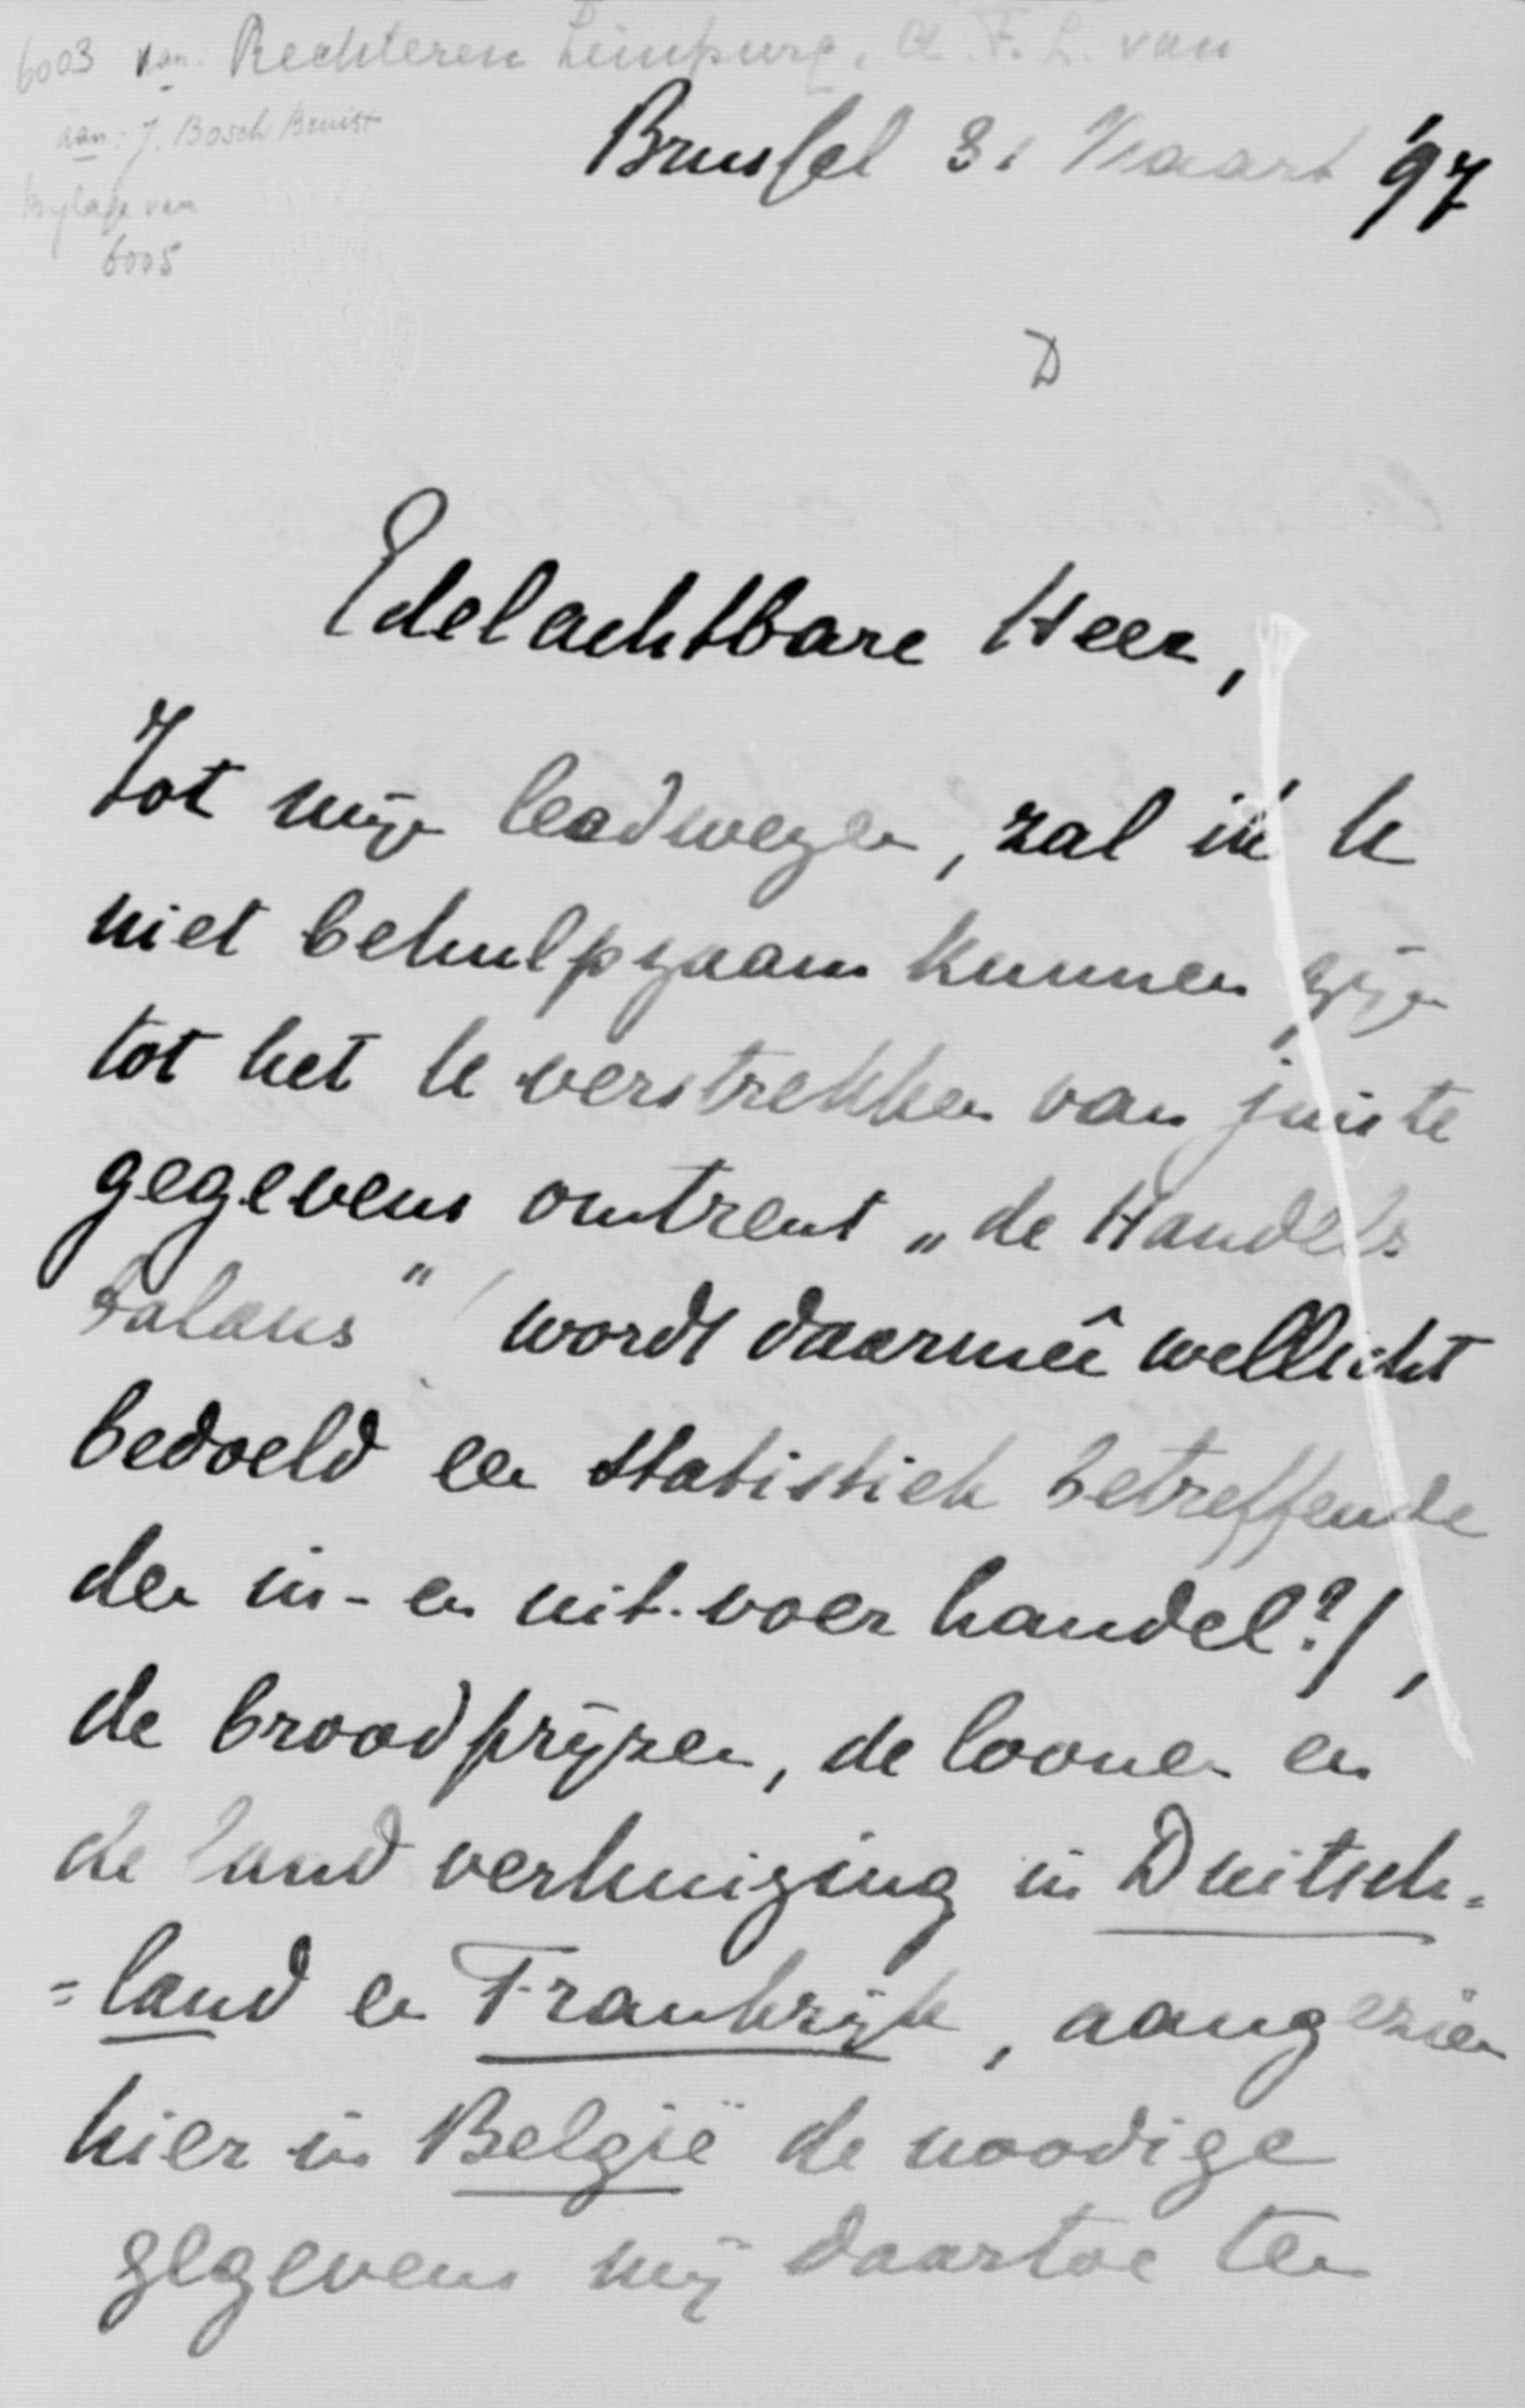 6003 van: Rechteren Limpurg, A. F. L. van
aan: J. Bosch Bruist
bylage van
6005
Brussel 31 Maart '97
D
Edelachtbare Heer,
Tot mijn leedwezen, zal ik U
niet behulpzaam kunnen zijn
tot het te verstrekken van juiste
gegevens omtrent „de Handels
balans" (wordt daarmeê wellicht
bedoeld een statistiek betreffende
den in- en uit-voer handel?),
de broodprijzen, de loonen en
de landverhuizing in Duitsch=
=land en Frankrijk, aangezien
hier in België de noodige
gegevens mij daartoe ten